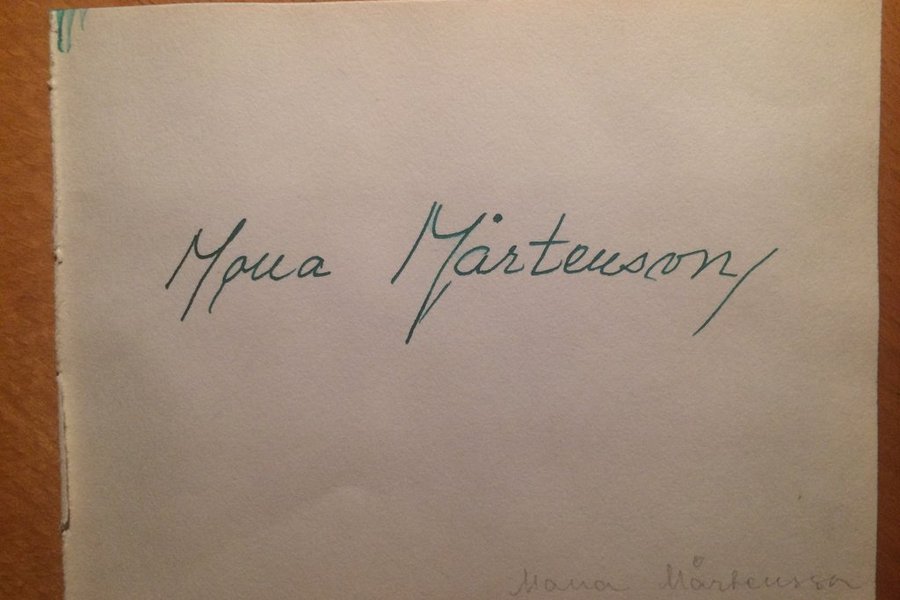 Mona Mårtenson
Mona Mårtenson